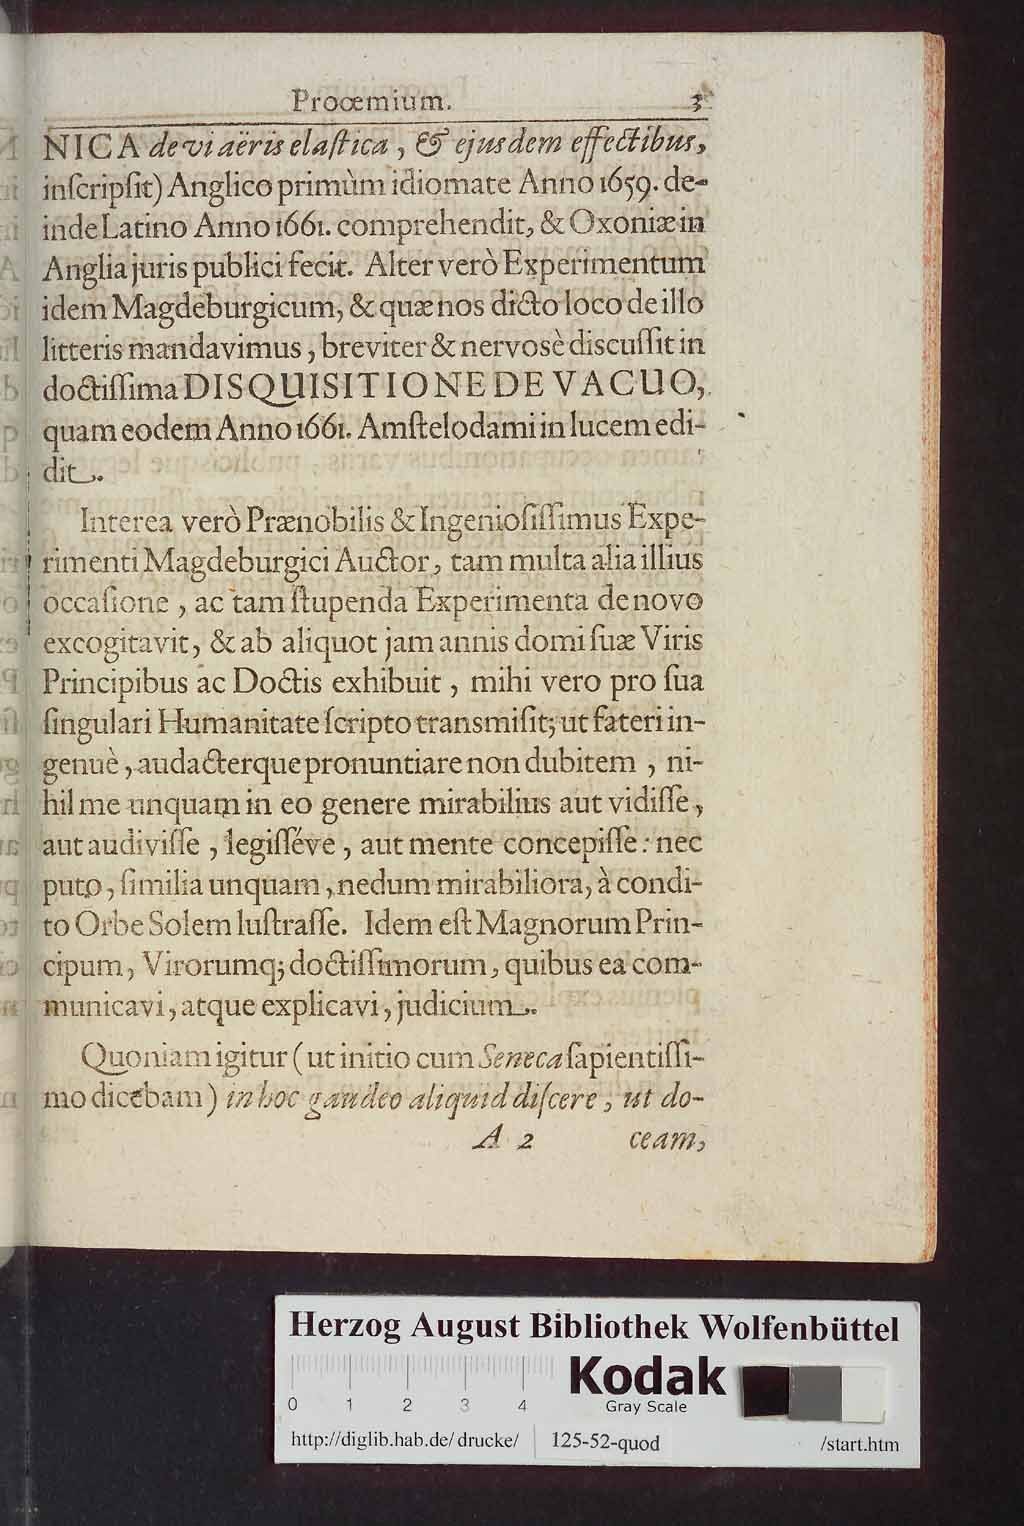 Prooemium. 3
NICA de vi aëris elaſtica, & ejusdem effectibus,
inſcripſit) Anglico primùm idiomate Anno 1659. de-
inde Latino Anno 1661. comprehendit, & Oxoniæ in
Anglia juris publici fecit. Alter verò Experimentum
idem Magdeburgicum, & quæ nos dicto loco de illo
litteris mandavimus, breviter & nervosè discuſſit in
doctiſſima DISQUISITIONE DE VACUO,
quam eodem Anno 1661. Amſtelodami in lucem edi-
dit.
Interea verò Prænobilis & Ingenioſiſſimus Expe-
rimenti Magdeburgici Auctor, tam multa alia illius
occaſione, ac tam ſtupenda Experimenta de novo
excogitavit, & ab aliquot jam annis domi ſuæ Viris
Principibus ac Doctis exhibuit, mihi vero pro ſua
ſingulari Humanitate ſcripto transmiſit; ut fateri in-
genuè, audacterque pronuntiare non dubitem, ni-
hil me unquam in eo genere mirabilius aut vidiſſe,
aut audiviſſe, legiſſéve, aut mente concepiſſe: nec
puto, ſimilia unquam, nedum mirabiliora, à condi-
to Orbe Solem luſtraſſe. Idem eſt Magnorum Prin-
cipum, Virorumq; doctiſſimorum, quibus ea com-
municavi, atque explicavi, judicium.
Quoniam igitur (ut initio cum Seneca ſapientiſſi-
mo dicebam) in hoc gaudeo aliquid diſcere, ut do-
A 2 ceam,
Herzog August Bibliothek Wolfenbüttel
Kodak
Gray Scale
0 1 2 3 4
http://diglib.hab.de/drucke/ 125-52-quod /start.htm